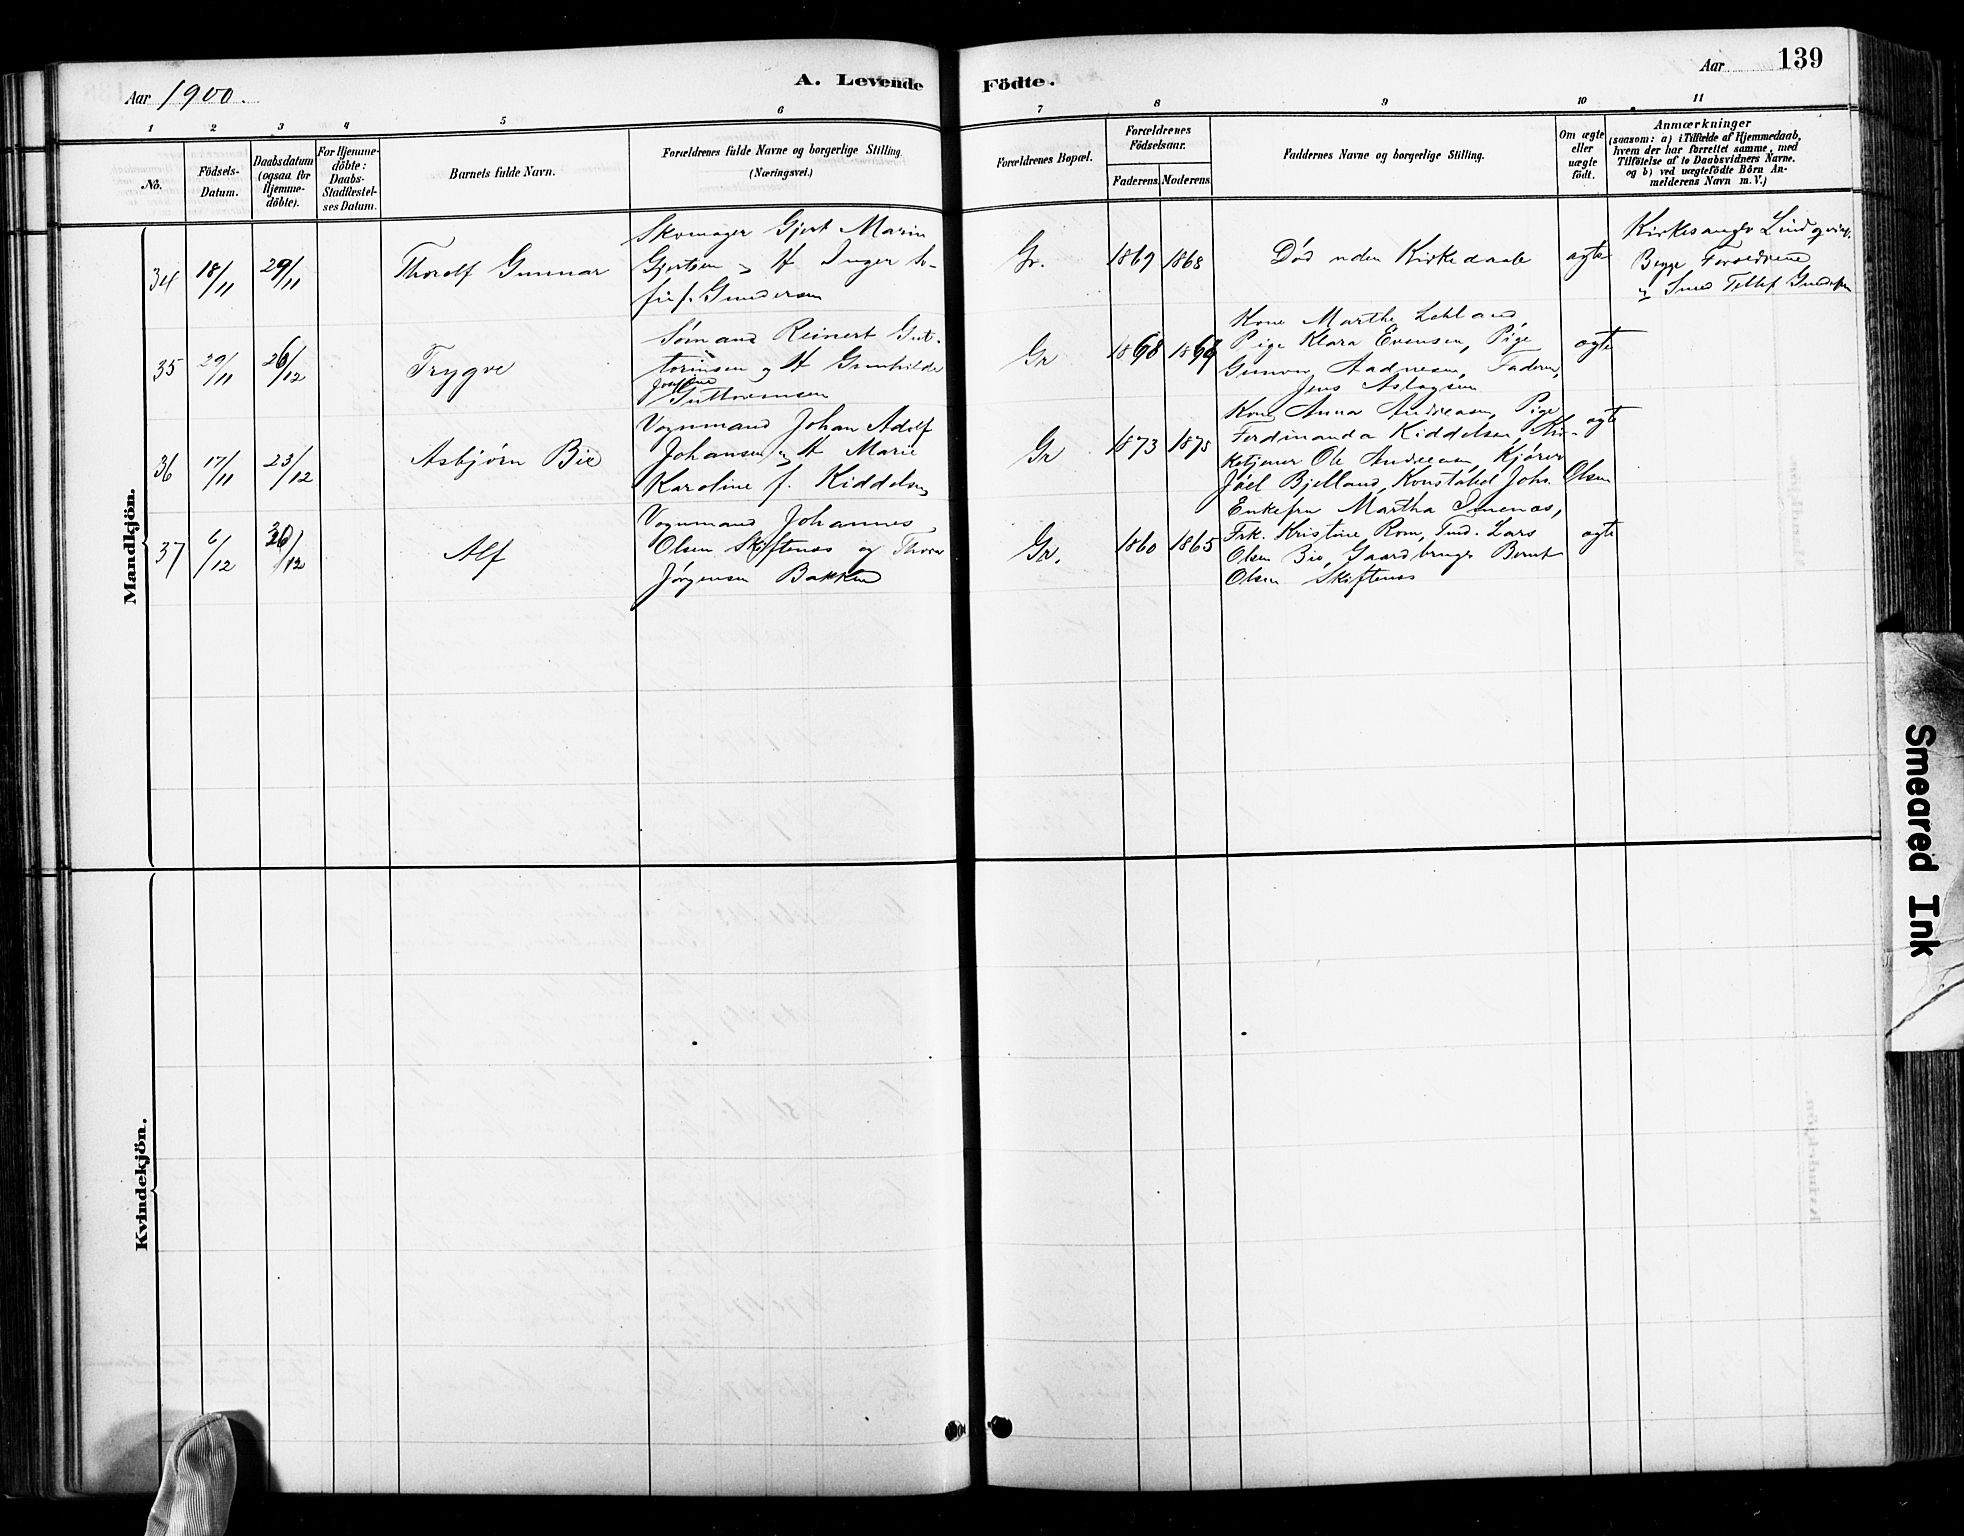 Aar 1900.
A. Levende
Födte.
Aar
139
1 2 3 4 5 6 7 8 9 10 11
No.
Födsels-
Datum.
Daabsdatum
(ogsaa for
Hjemme-
döbte).
For Hjemme-
döbte:
Daabs-
Stadfæstel-
ses Datum.
Barnets fulde Navn.
Forældrenes fulde Navne og borgerlige Stilling.
(Næringsvei.)
Forældrenes Bopæl.
Forældrenes
Födselsaar.
Faderens. Moderens.
Faddernes Navne og borgerlige Stilling.
Om ægte
eller
uægte
födt.
Anmærkninger
(saasom: a) i Tilfælde af Hjemmedaab,
hvem der har forrettet samme, med
Tilföielse af to Daabsvidners Navne.
og b) ved uægtefödte Börn An-
melderens Navn m. V.)
Mandkjön.
34
18/11
29/11
Thorolf Gunnar
Skomager Gjert Marin
Gjertsen og H Inger So-
fie f. Gundersen
Gr.
1869 1868
Död uden Kirkedaab
ægte
Kirkesanger Lindqvist.
Begge Forældrene
og Smed Tellef Gundersen
35
29/11
26/12
Trygve
Sømand Reinert Gut-
tormsen og H Gunhilde
Josefine
Guttormsen
Gr
1868 1869
Kone Marthe Lekland,
Pige Klara Evensen, Pige
Gunvor Aadnesen, Faderen,
Jens Aslagsen
ægte
36
17/11
23/12
Asbjørn Bie
Vognmand Johan Adolf
Johansen og H Marie
Karoline f. Kiddelsen
Gr
1873 1875
Kone Anna Andreasen, Pige
Ferdinanda Kiddelsen, Kir-
ketjener Ole Andreasen, Kjører
Joel Bjelland, Konstabel Johs. Olsen
ægte
37
6/12
26/12
Alf
Vognmand Johannes
Olsen Skiftenes og Thora
Jørgensen Bakken
Gr.
1860 1865
Enkefru Martha
Frk. Kristine Rom, Tmd. Lars
Olsen Bie, Gaardbruger Bernt
Olsen Skiftenes
ægte
Kvindekjön.
Smeared Ink